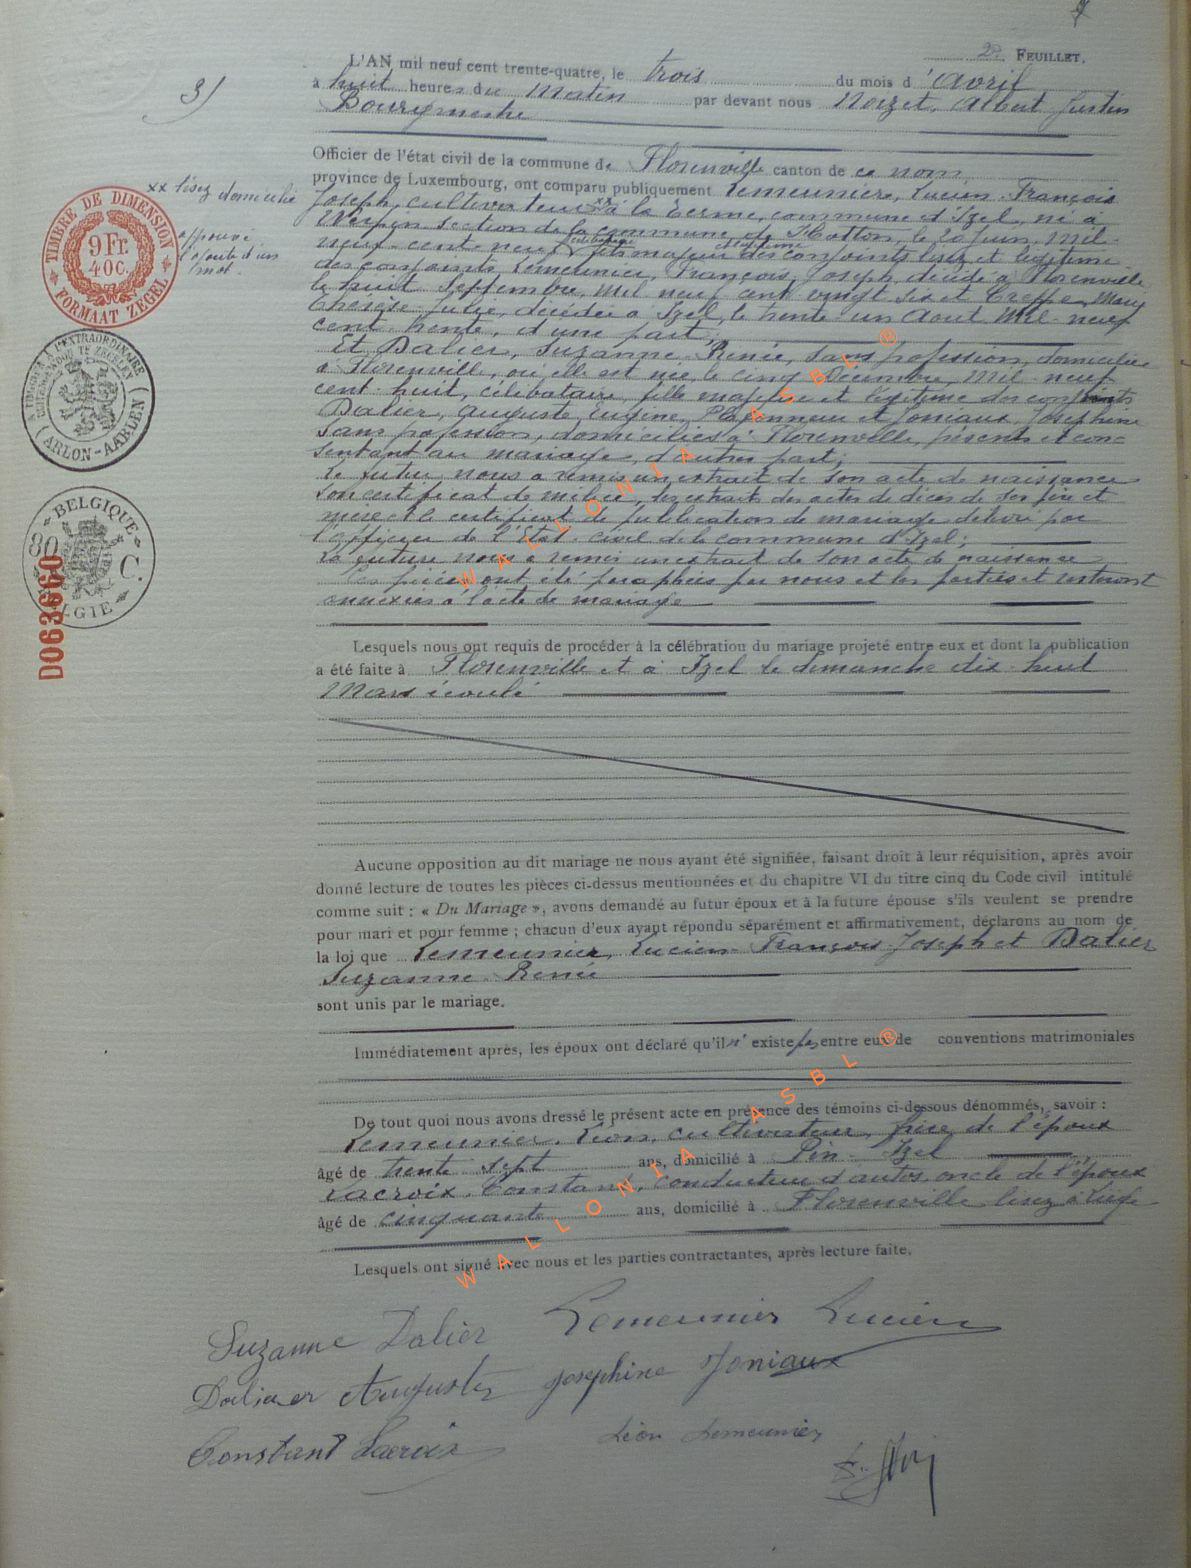 22 FEUILLET.
L'AN mil neuf cent trente-quatre, le trois du mois d'avril
à huit heures du Matin par devant nous Noizet, Albert Justin
Bourgmestre
3/
Officier de l'état civil de la commune de Florenville canton de ce nom
province de Luxembourg, ont comparu publiquement Lemeunier, Lucien François
xx lisez domicilié
Joseph, cultivateur xx à la Terme, commune d'Izel, né à
section de la commune de Hotton, le 20 juin, Mil
approuvé
l'ajoute d'un
mot.
neuf cent neuf, célibataire, fils majeur et légitime
des conjoints Lemeunier, François, Joseph décédé à Florenville
le huit Septembre, mil neuf cent vingt six et Mary
Thérèse Julie, décédée à Izel, le trente un Août Mil neuf
cent trente, d'une part,
Et Dalier, Suzanne Renée, sans profession, domiciliée
à Florenville, où elle est née le cinq Décembre, Mil neuf
cent huit, célibataire, fille majeure et légitime des conjoints
Dalier, Auguste Eugène, et Joniaux, Joséphine
sans profession, domiciliés à Florenville, présents et con
sentant au mariage, d'autre part;
Le futur nous a remis un extrait de son acte de naissance
son certificat de milice, les extraits des actes de décès de ses père et
mère et le certificat de publication de mariage délivré par
l'officier de l'état civil de la commune d'Izel;
La future nous a remis un extrait de son acte de naissance
Ces pièces ont été paraphées par nous et les parties et resteront
annexées à l'acte de mariage
Lesquels nous ont requis de procéder à la célébration du mariage projeté entre eux et dont la publication
a été faite à Florenville et à Izel le dimanche dix huit
Mars écoulé
Aucune opposition au dit mariage ne nous ayant été signifiée, faisant droit à leur réquisition, après avoir
donné lecture de toutes les pièces ci-dessus mentionnées et du chapitre VI du titre cinq du Code civil intitulé
comme suit : « Du Mariage », avons demandé au futur époux et à la future épouse s'ils veulent se prendre
pour mari et pour femme ; chacun d'eux ayant répondu séparément et affirmativement, déclarons au nom de
la loi que Lemeunier, Lucien François Joseph et Dalier
Suzanne Renée
sont unis par le mariage.
Immédiatement après, les époux ont déclaré qu'il n'existe pas entre eux de conventions matrimoniales
De tout quoi nous avons dressé le présent acte en présence des témoins ci-dessous dénommés, savoir :
Lemeunier, Léon, cultivateur, frère de l'époux
âgé de trente sept ans, domicilié à Pin-Izel
Lacroix, Constant, conducteur d'autos, oncle de l'époux
âgé de cinquante ans, domicilié à Florenville
Lesquels ont signé avec nous et les parties contractantes, après lecture faite.
Suzanne Dalier Lemeunier Lucien
Dalier Auguste Joséphine Joniaux
Constant Lacroix Léon Lemeunier
TIMBRE DE DIMENSION
9 Fr.
40 C.
FORMAAT ZEGEL
ARLON-AARLEN
BELGIQUE
BELGIE
D063660
WALLONIA ASBL ®
WALLONIA ASBL ®